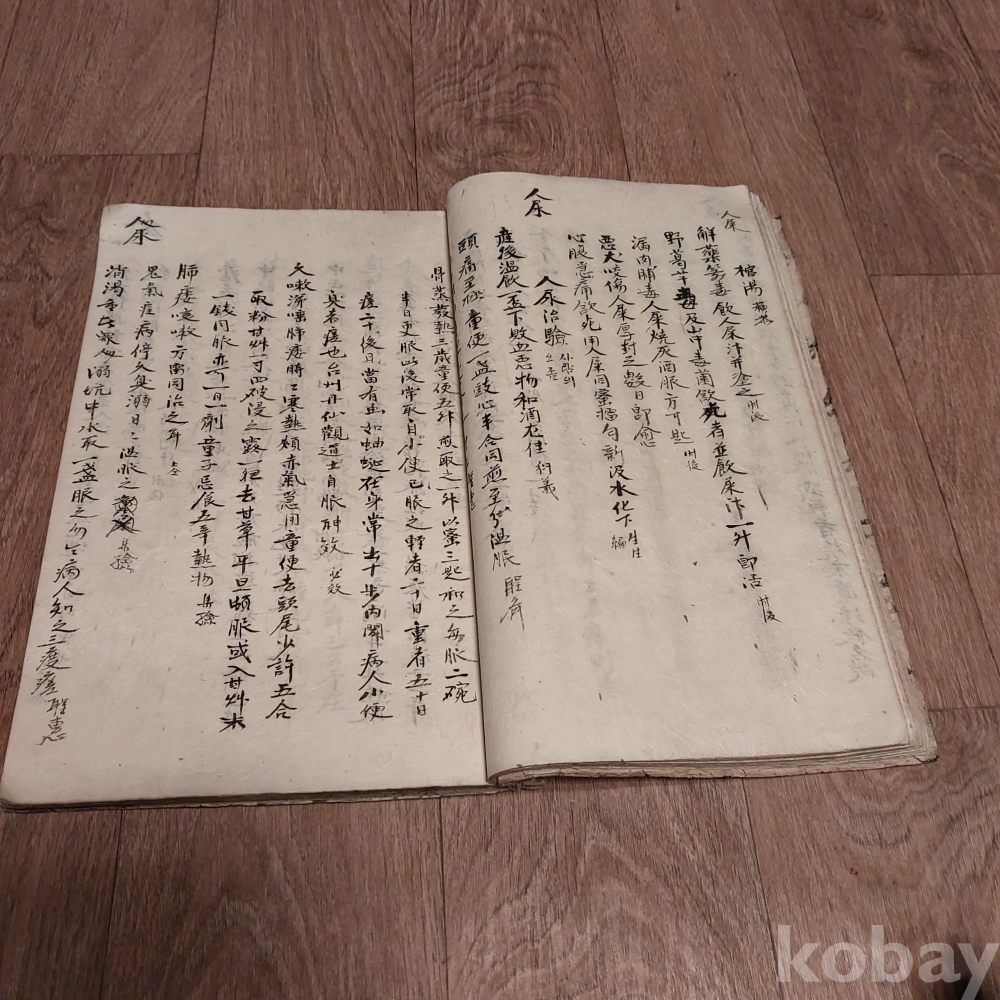 人屎
解藥箭毒 飲人屎汁并塗之 肘後
野葛芋毒及山中毒菌欲死者並飲屎汁一升即活 肘後
漏肉脯毒人屎燒灰酒服方寸匕 肘後
惡犬咬傷人屎厚封之數日即愈
心腹急痛欲死用人屎同蜜擂匀新汲水化下 生生編
人尿
人尿治驗 사람의 오좀
產後溫飲一盃下敗血惡物和酒尤佳 衍義
頭痛至極童便一盞豉心半合同煎至 溫服 聖濟
骨蒸發熱三歲童便五升煎取之一升以蜜三匙和之每服二碗
半日更服此後常取自小便已服之輕者二十日重者五十日
瘥二十後日當有虫如蚰蜒在身常出十步內聞病人小便
臭者瘥也台州丹仙觀道士自服神效 必效
久嗽涕唾肺痿時時寒熱頰赤氣急用童便去頭尾少許五合
取粉甘艸一寸四破浸之露一宿去甘草平旦頓服或入甘艸末
一錢同服亦可一日一劑童子忌食五辛熱物 集驗
肺痿咳嗽方 同治之
鬼氣疰病停久臭溺日日溫服之 集驗
消渴 衆人溺坑中水取一盞服之勿令病人知之三度瘥 聖惠